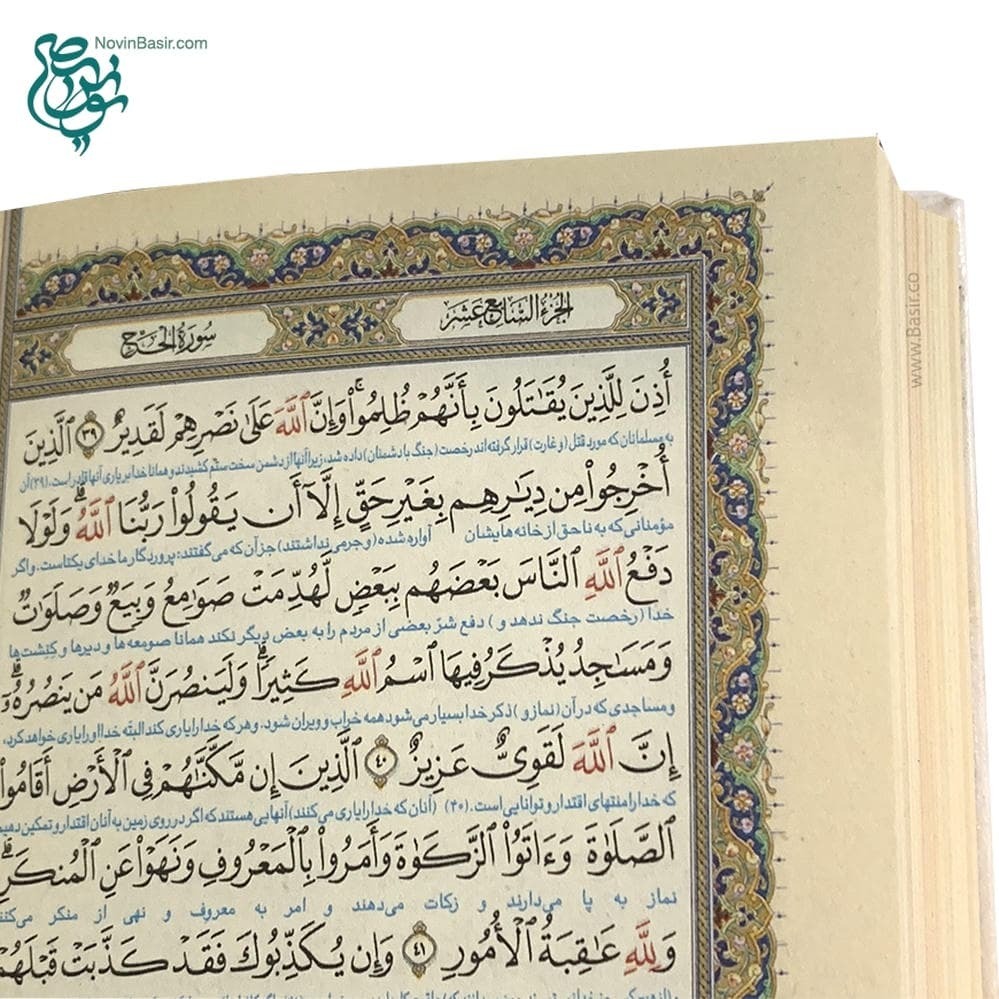 NovinBasir.com
www.Basir.co
الجزء السابع عشر
سورة الحج
أُذِنَ لِلَّذِينَ يُقَٰتَلُونَ بِأَنَّهُمْ ظُلِمُوا۟ ۚ وَإِنَّ ٱللَّهَ عَلَىٰ نَصْرِهِمْ لَقَدِيرٌ ﴿٣٩﴾ ٱلَّذِينَ
به مسلمانان که مورد قتل (و غارت) قرار گرفته‌اند رخصت (جنگ با دشمنان) داده شد، زیرا آنها از دشمن سخت ستم کشیدند و همانا خدا بر یاری آنها قادر است. (۳۹) آن
أُخْرِجُوا۟ مِن دِيَٰرِهِم بِغَيْرِ حَقٍّ إِلَّآ أَن يَقُولُوا۟ رَبُّنَا ٱللَّهُ ۗ وَلَوْلَا
مؤمنانی که به ناحق از خانه هایشان آواره شده (و جرمی نداشتند) جز آن که می‌گفتند: پروردگار ما خدای یکتاست. و اگر
دَفْعُ ٱللَّهِ ٱلنَّاسَ بَعْضَهُم بِبَعْضٍ لَّهُدِّمَتْ صَوَٰمِعُ وَبِيَعٌ وَصَلَوَٰتٌ
خدا (رخصت جنگ ندهد و) دفع شرّ بعضی از مردم را به بعض دیگر نکند همانا صومعه‌ها و دیرها و کنشت‌ها
وَمَسَٰجِدُ يُذْكَرُ فِيهَا ٱسْمُ ٱللَّهِ كَثِيرًا ۗ وَلَيَنصُرَنَّ ٱللَّهُ مَن يَنصُرُهُۥٓ ۗ
و مساجدی که در آن (نماز و) ذکر خدا بسیار می‌شود همه خراب و ویران شود. و هر که خدا را یاری کند البته خدا او را یاری خواهد کرد،
إِنَّ ٱللَّهَ لَقَوِىٌّ عَزِيزٌ ﴿٤٠﴾ ٱلَّذِينَ إِن مَّكَّنَّٰهُمْ فِى ٱلْأَرْضِ أَقَامُوا۟
که خدا را منتهای اقتدار و توانایی است. (۴۰) (آنان که خدا را یاری می‌کنند) آنهایی هستند که اگر در روی زمین به آنان اقتدار و تمکین دهیم
ٱلصَّلَوٰةَ وَءَاتَوُا۟ ٱلزَّكَوٰةَ وَأَمَرُوا۟ بِٱلْمَعْرُوفِ وَنَهَوْا۟ عَنِ ٱلْمُنكَرِ ۗ
نماز به پا می‌دارند و زکات می‌دهند و امر به معروف و نهی از منکر می‌کنند
وَلِلَّهِ عَٰقِبَةُ ٱلْأُمُورِ ﴿٤١﴾ وَإِن يُكَذِّبُوكَ فَقَدْ كَذَّبَتْ قَبْلَهُمْ